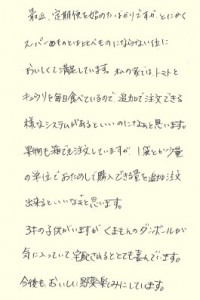 最近、定期便を始めたばかりですが とにかく
スーパーのものとは比べものにならない位に
おいしくて満足しています。私の家ではトマトと
キュウリを毎日食べているので 追加で注文できる
様なシステムがあるといいのになぁと思います。
果物も 注文していますが 1袋とか少量
の単位で おためしで購入できる量を追加注文
出来るといいなぁと思います。
3才の子供がいますが くまモンのダンボールが
気に入っていて 宅配されるととても喜んでいます。
今後も、おいしい野菜楽しみにしています。